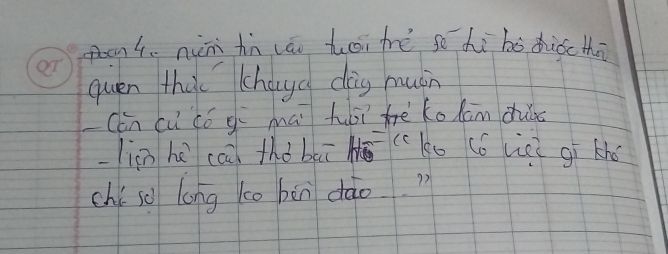 QT Đoạn 4: niềm tin vào tuổi trẻ sẽ từ bỏ được thói
quen thức khuya dậy muộn
- Còn cái có gì mà tuổi trẻ ko làm được
- liên hệ câu thơ bác "ko có việc gì khó
chỉ sợ lòng ko bền dào..."